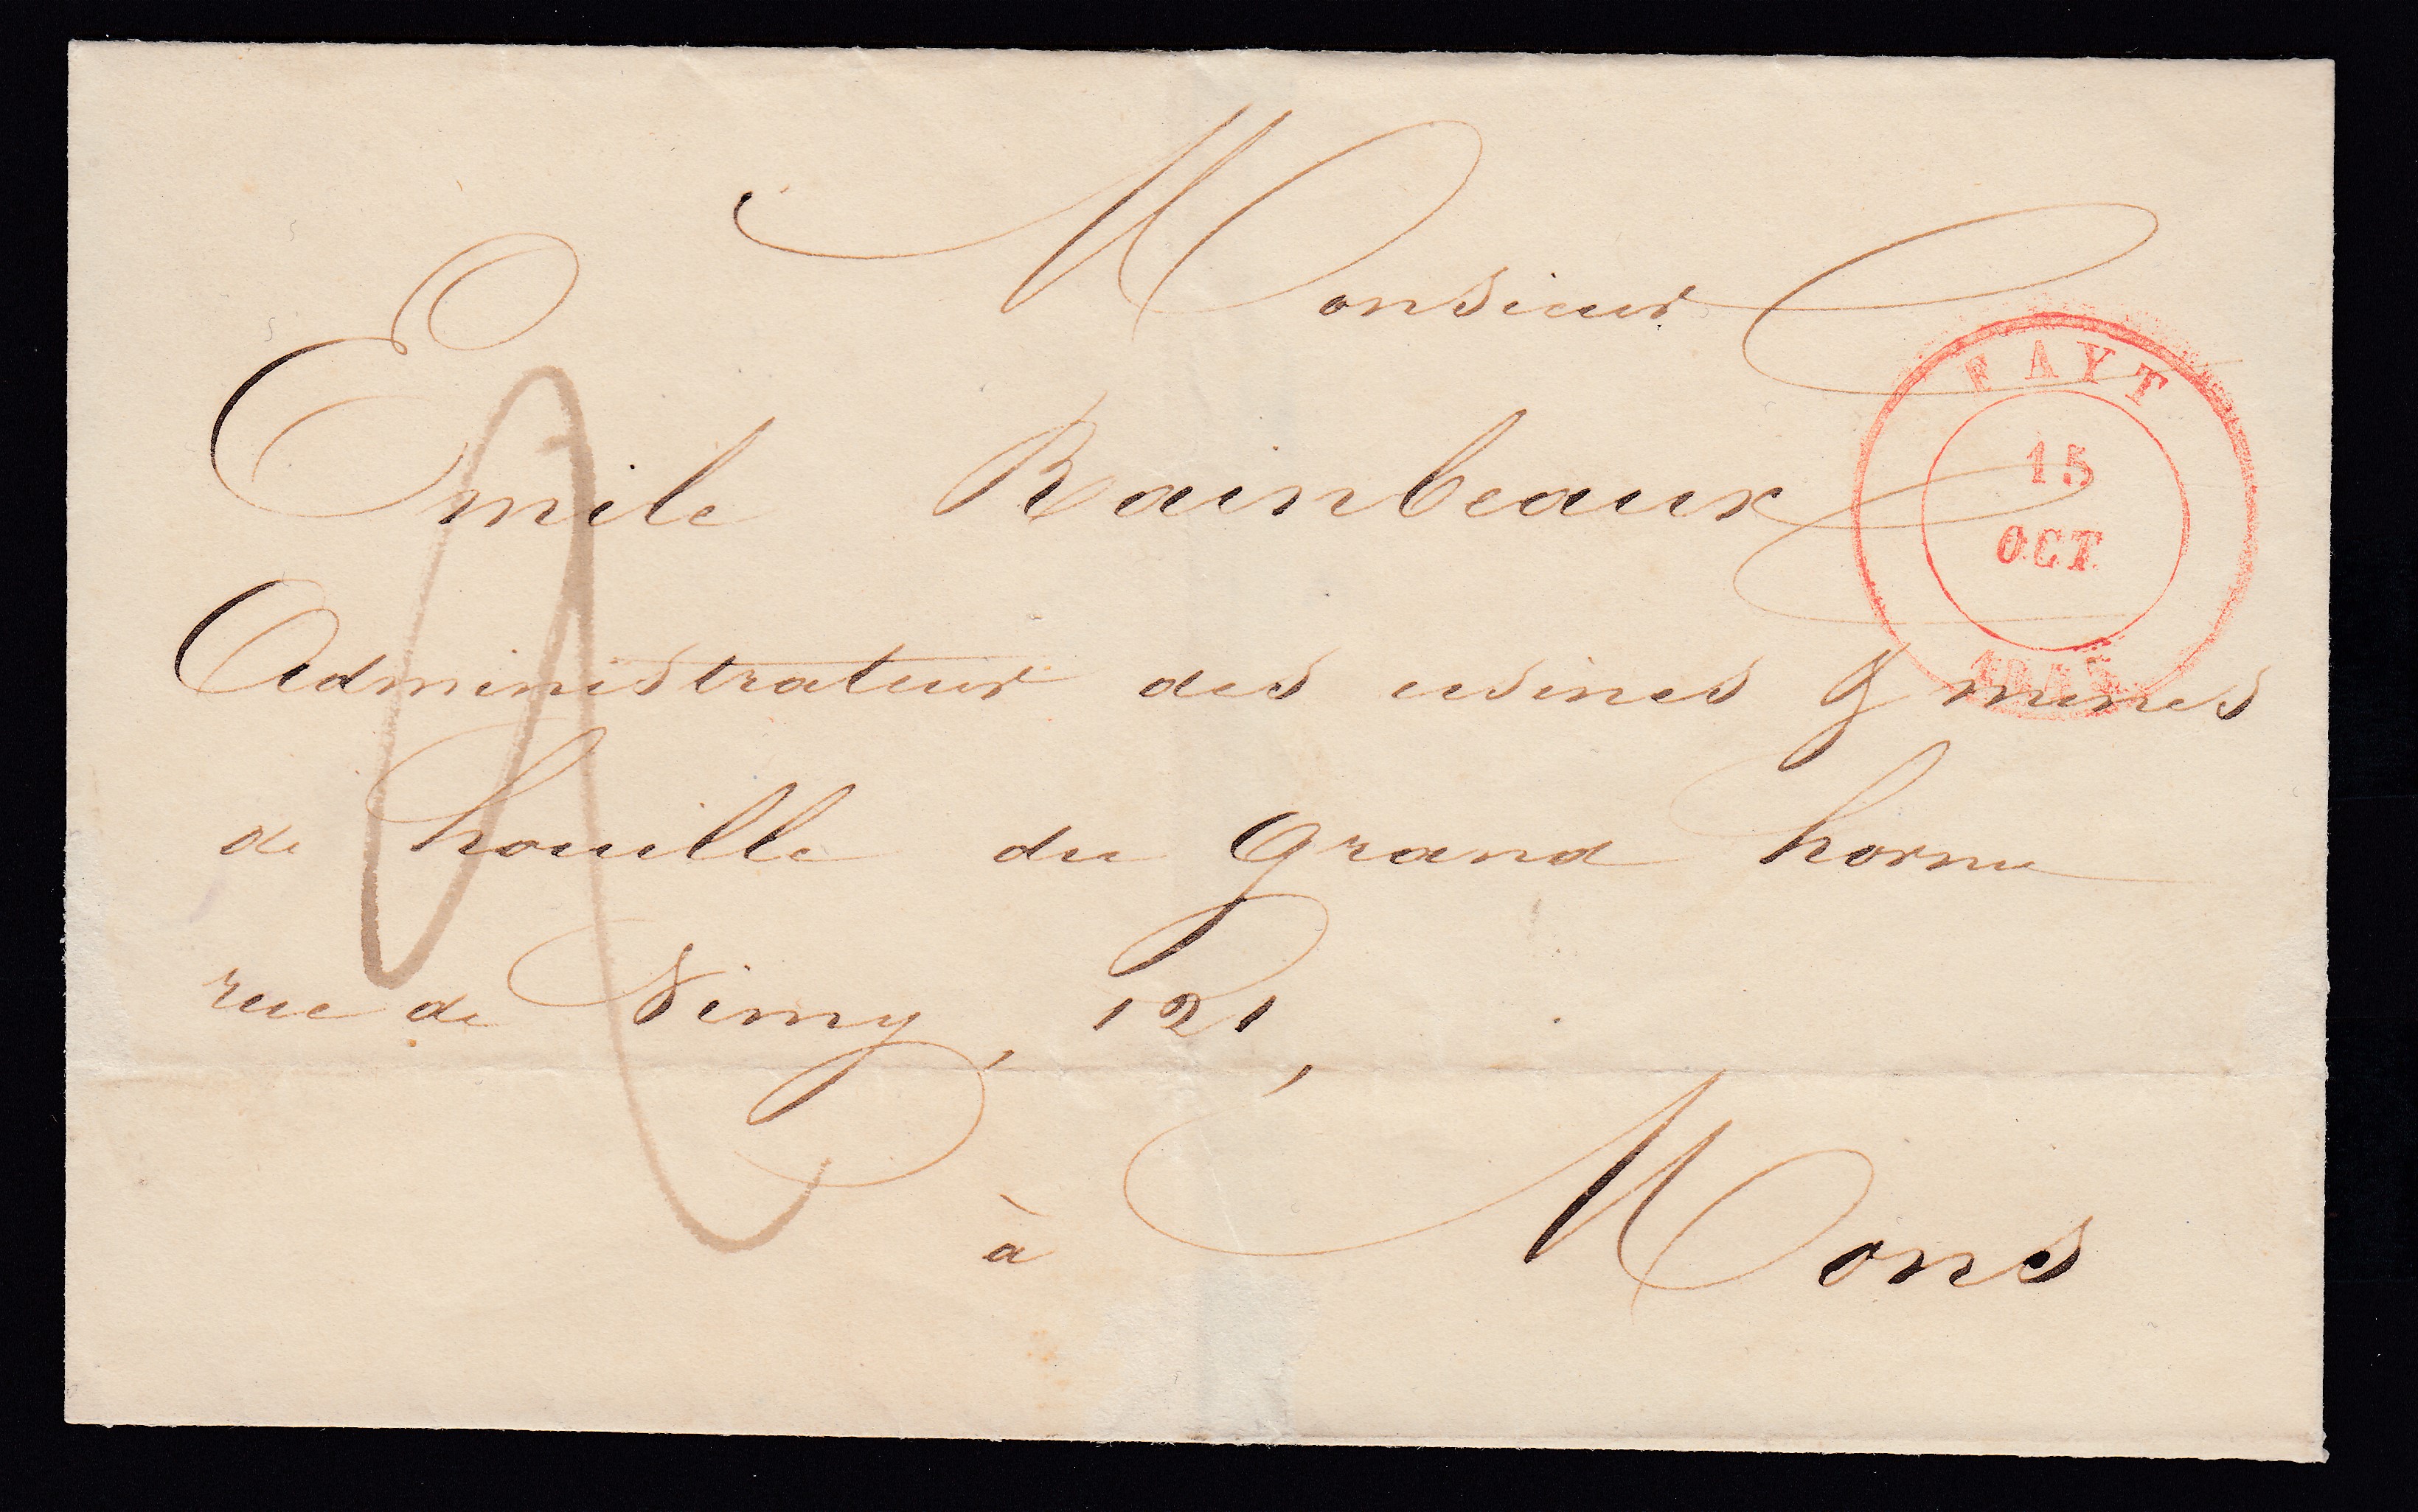 Monsieur
Emile Rainbeaux
Administrateur des usines & mines
de houille du grand hornu
rue de Nimy, 121,
à Mons
FAYT
15
OCT